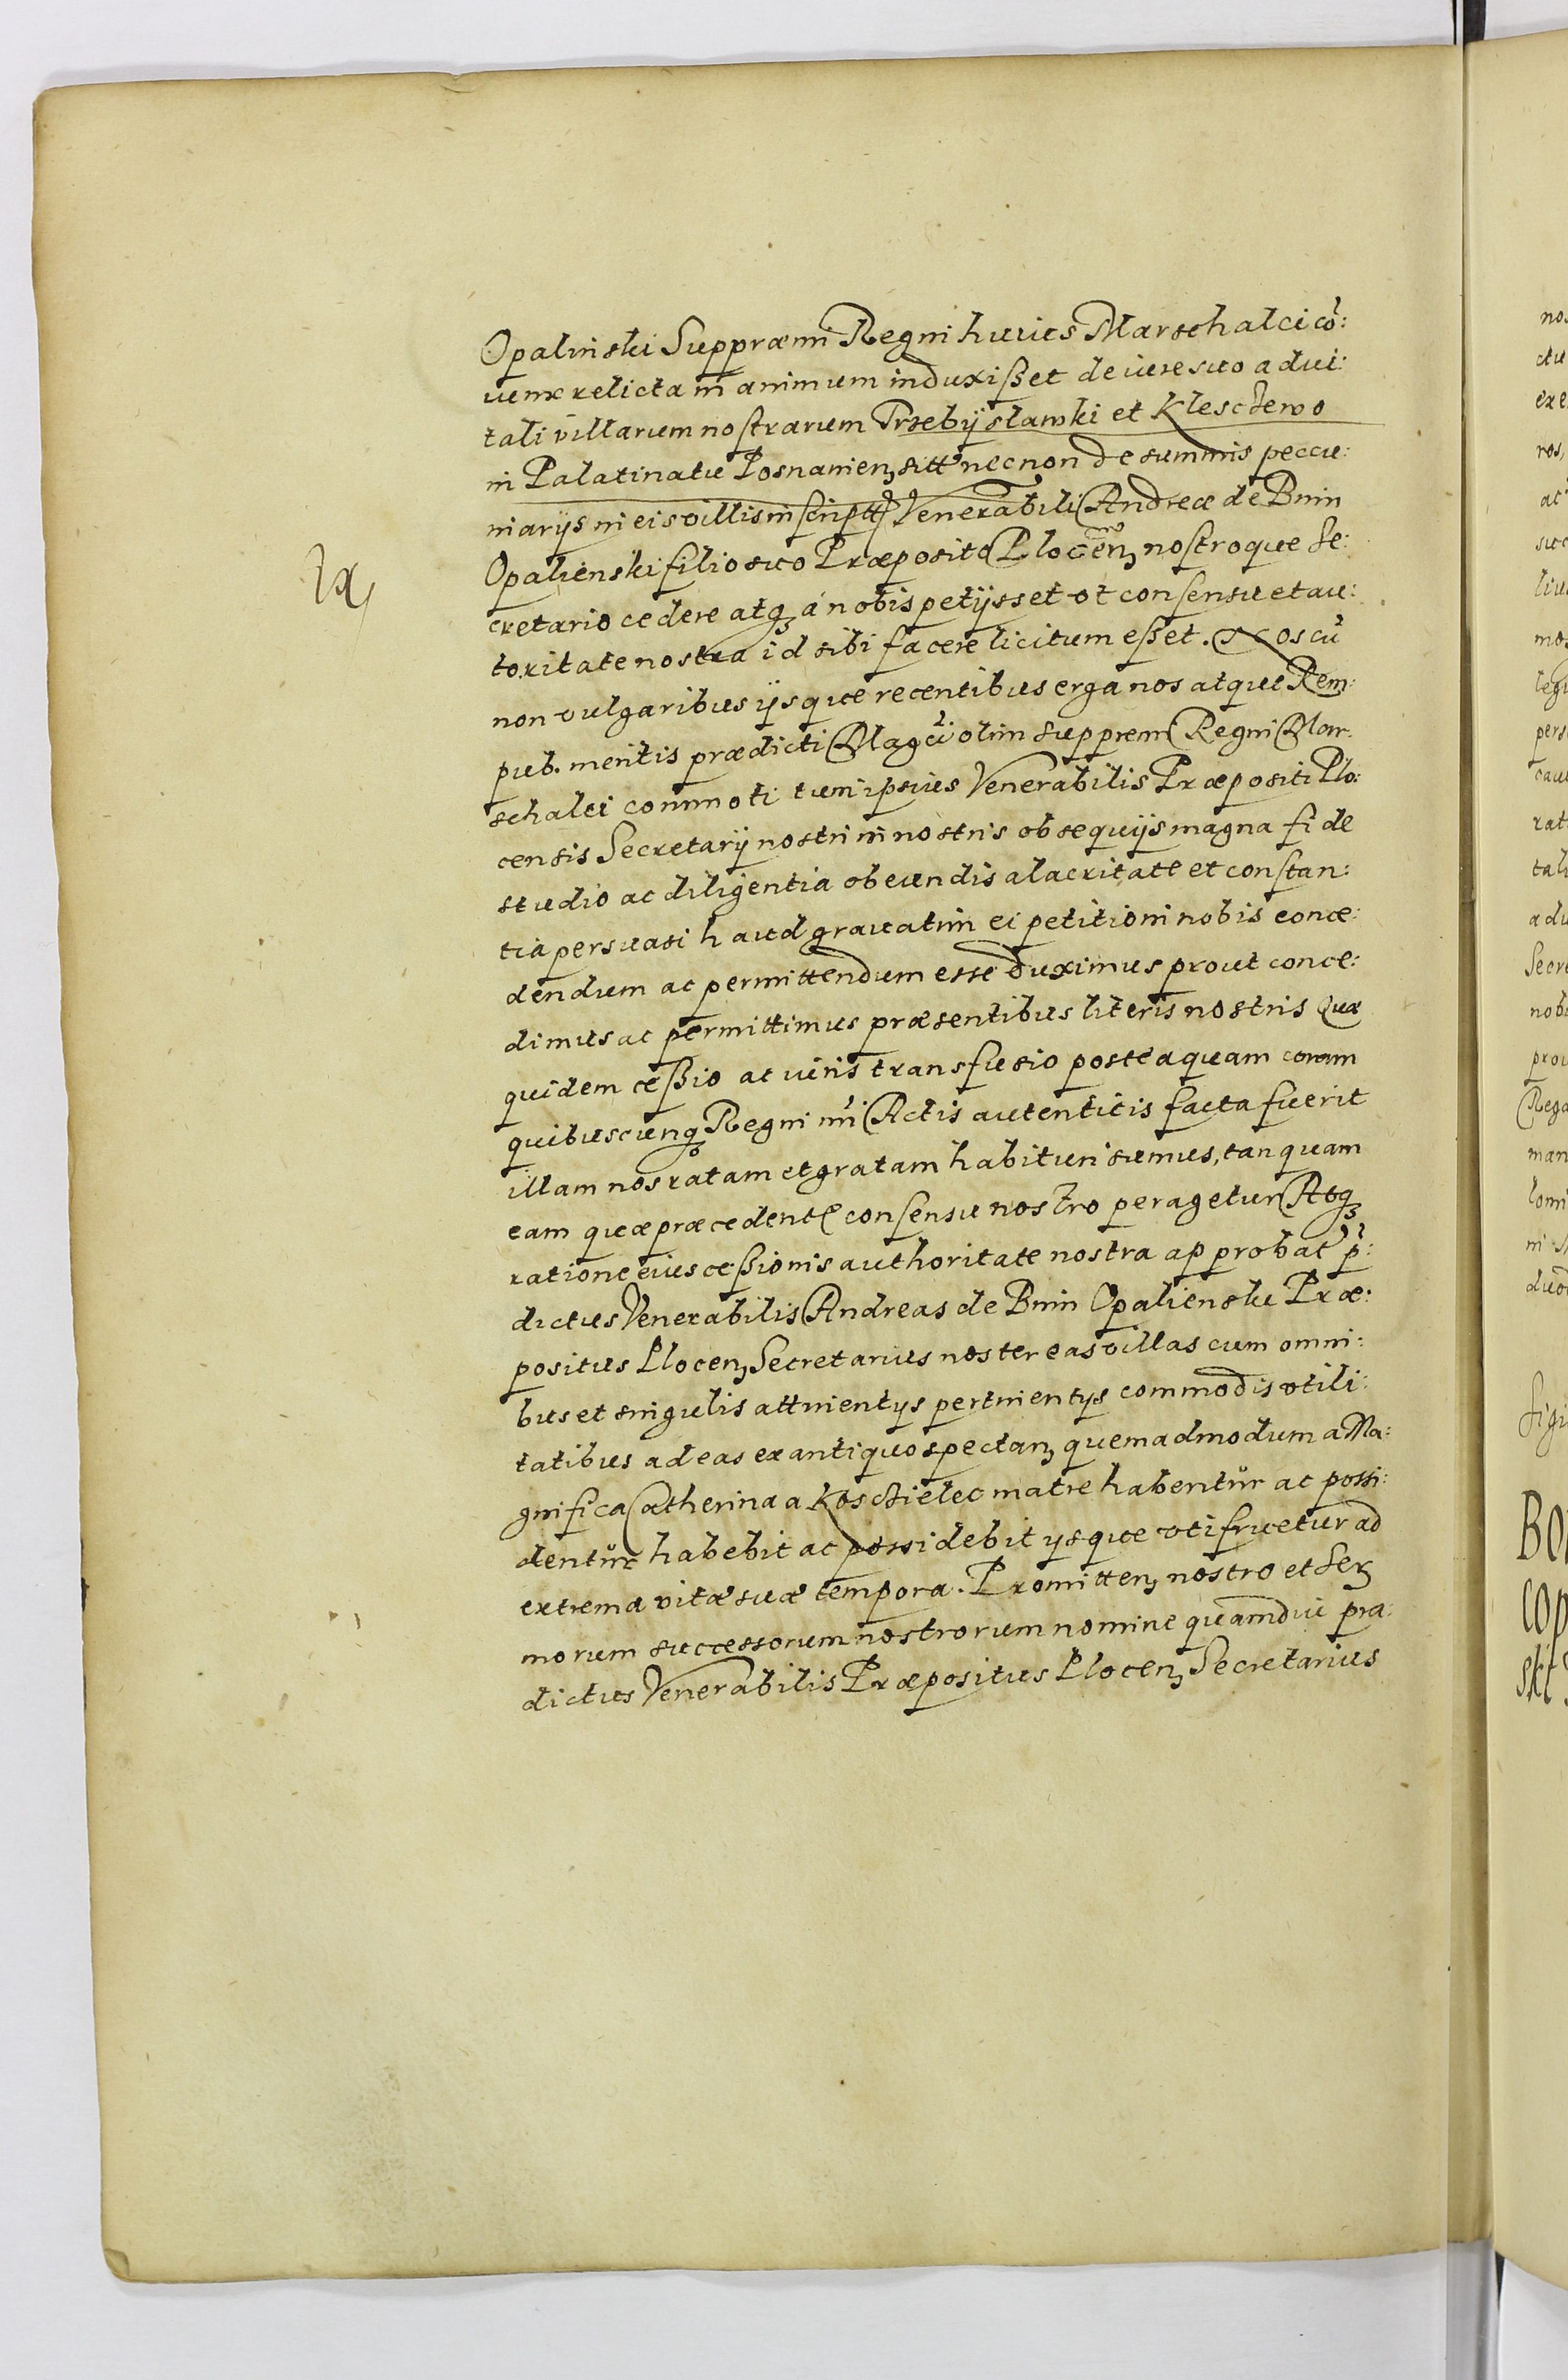 Opalinski Suppræmi Regni huius Marschalci cõ:
iunx relicta in animum induxißet de iure suo adui:
tali villarum nostrarum Przebÿslawki et Klesczewo
in Palatinatu Posnanien sitt necnon de summis peccu:
niarÿs in eis villis inscriptt Venerabili Andreæ de Bnin
Opalienski filio suo Præposito Plocen nostroque Se:
cretario cedere atq á nobis petÿsset vt consensu et au:
toritate nostra id sibi facere licitum eßet. Nos cũ
non vulgaribus ÿsque recentibus erga nos atque Rem
pub. meritis prædicti Magci olim supprem Regni Mar
schalci commoti tum ipsius Venerabilis Præpositi Plo:
censis Secretarÿ nostri in nostris obsequÿs magna fide
studio ac diligentia obeundis alacritate et constan:
tia persuasi haud grauatim ei petitioni nobis conce:
dendum ac permittendum esse duximus prout conce:
dimus ac permittimus præsentibus literis nostris Quæ
quidem ceßio ac iuris transfusio posteaquam coram
quibuscunq Regni nri Actis autenticis facta fuerit
illam nos ratam et gratam habituri sumus, tanquam
eam quæ præcedente consensu nostro peragetur Atq
ratione eius ceßionis authoritate nostra approbat p:
dictus Venerabilis Andreas de Bnin Opalienski Præ:
positus Plocen Secretarius noster eas villas cum omni:
bus et singulis attinentÿs pertinentÿs commodis vtili:
tatibus ad eas ex antiquo spectan quemadmodum a Ma:
gnifica Catherina a Koscielec matre habentur ac possi:
dentur habebit ac possidebit ÿsque vti fruetur ad
extrema vitæ suæ tempora. Promitten nostro et Ser
morum successorum nostrorum nomine quamdiu præ:
dictus Venerabilis Præpositus Plocen Secretarius